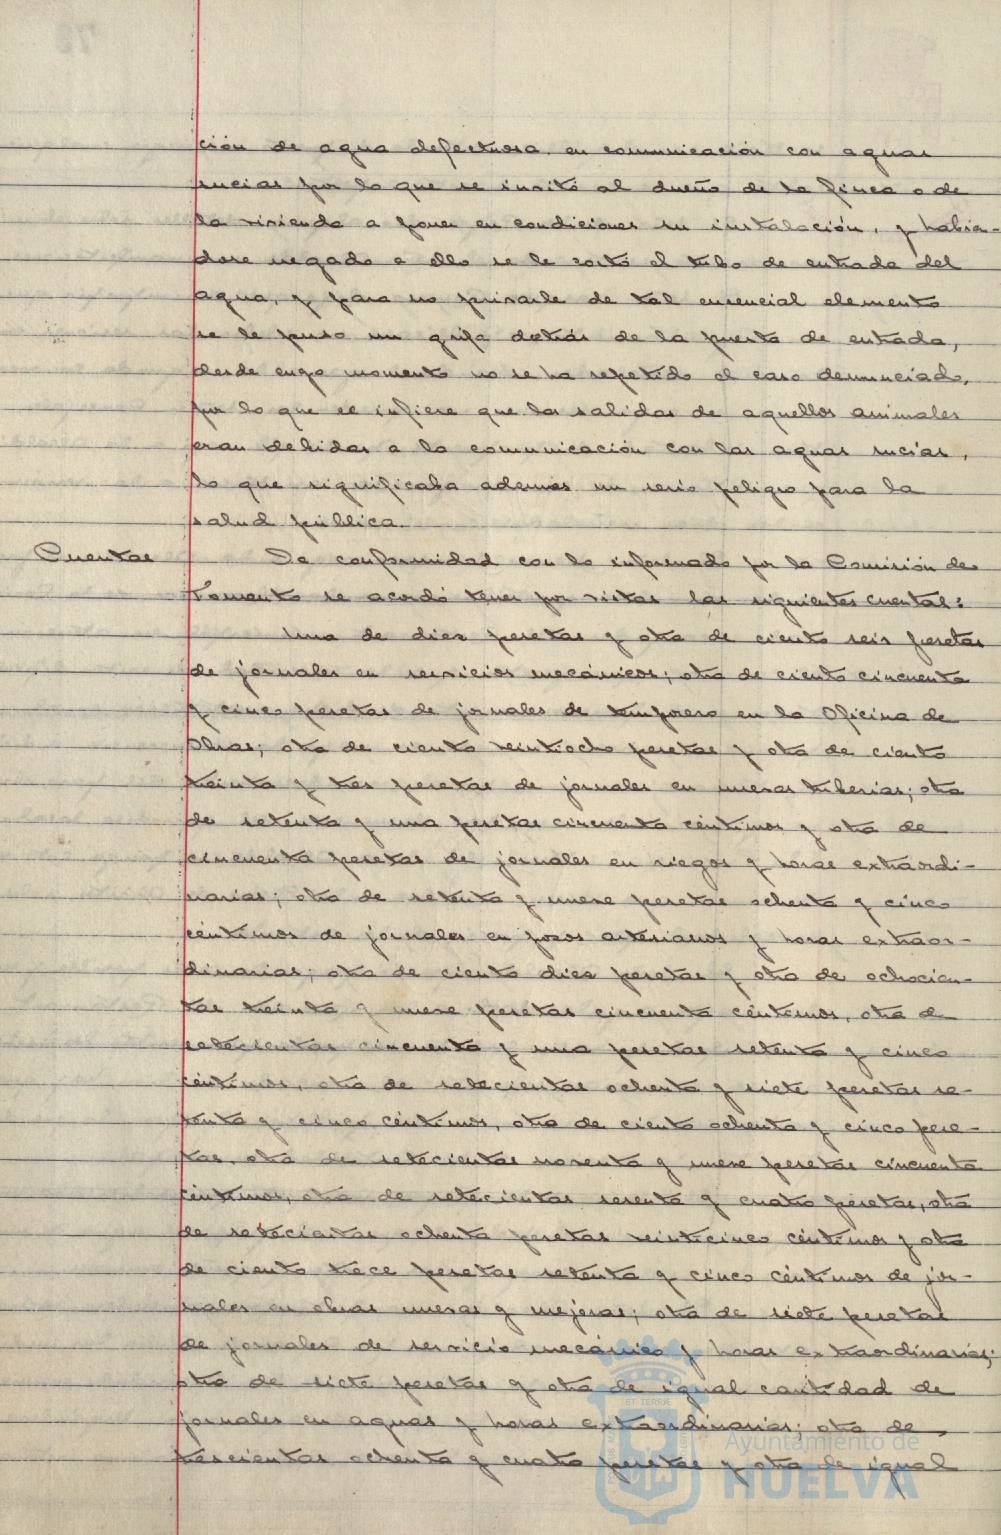 ción de agua defectuosa en comunicación con aguas
sucias por lo que se invitó al dueño de la finca o de
la vivienda a poner en condiciones su instalación, y habien-
dose negado a ello se le cortó el tubo de entrada del
agua, y para no privarle de tal esencial elemento
se le puso un grifo detrás de la puerta de entrada,
desde cuyo momento no se ha repetido el caso denunciado,
por lo que se infiere que las salidas de aquellos animales
eran debidas a la comunicación con las aguas sucias,
lo que significaba además un serio peligro para la
salud pública.
Cuentas De conformidad con lo informado por la Comisión de
Fomento se acordó tener por vistas las siguientes cuentas:
Una de diez pesetas y otra de ciento seis pesetas
de jornales en servicios mecánicos; otra de ciento cincuenta
y cinco pesetas de jornales de temporero en la Oficina de
Obras; otra de ciento veintiocho pesetas y otra de ciento
treinta y tres pesetas de jornales en nuevas tuberias; otra
de setenta y una pesetas cincuenta céntimos y otra de
cincuenta pesetas de jornales en riegos y horas extraordi-
narias; otra de setenta y nueve pesetas ochenta y cinco
céntimos de jornales en pozos artesianos y horas extraor-
dinarias; otra de ciento diez pesetas y otra de ochocien-
tas treinta y nueve pesetas cincuenta céntimos, otra de
setecientas cincuenta y una pesetas setenta y cinco
céntimos, otra de setecientas ochenta y siete pesetas se-
tenta y cinco céntimos, otra de ciento ochenta y cinco pese-
tas, otra de setecientas noventa y nueve pesetas cincuenta
céntimos, otra de setecientas sesenta y cuatro pesetas, otra
de setecientas ochenta pesetas veinticinco céntimos y otra
de ciento trece pesetas setenta y cinco céntimos de jor-
nales en obras nuevas y mejoras; otra de siete pesetas
de jornales de servicio mecánico y horas extraordinarias;
otra de siete pesetas y otra de igual cantidad de
jornales en aguas y horas extraordinarias; otra de
trescientas ochenta y cuatro pesetas y otra de igual
Ayuntamiento de
HUELVA